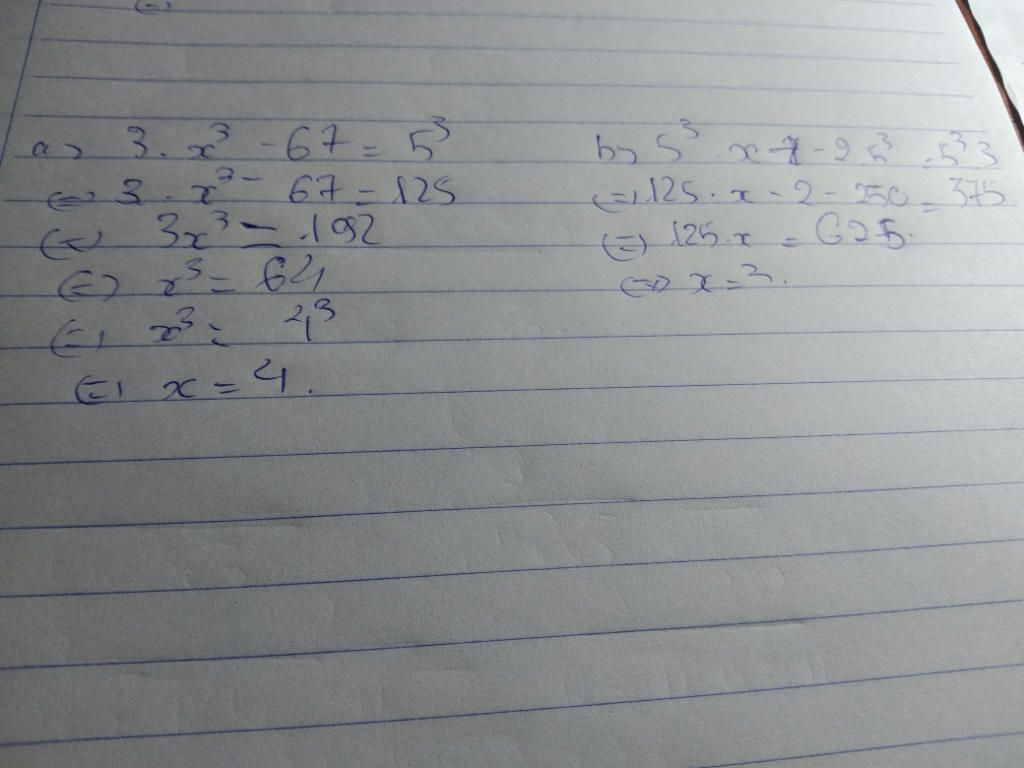 a) 3 . x³ - 67 = 5³
⇔ 3 . x³ - 67 = 125
⇔ 3x³ = 192
⇔ x³ = 64
⇔ x³ = 4³
⇔ x = 4.
b) 5³ . x - 2 5³ = 5³ 3
⇔ 125 . x - 2 - 250 = 375
⇔ 125 . x = 625.
⇔ x =